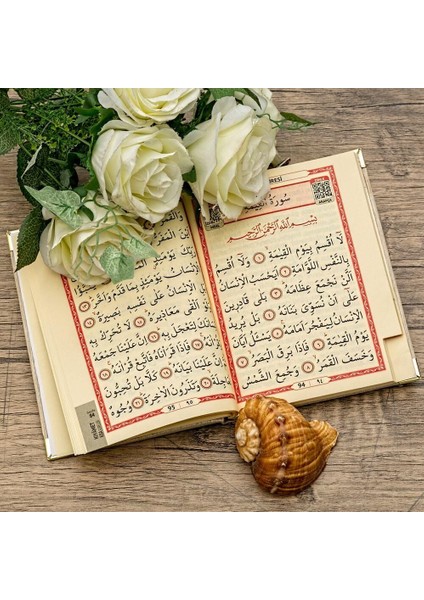 RESİ
سُورَةُ الْقِيٰمَةِ
بِسْمِ اللّٰهِ الرَّحْمٰنِ الرَّحِيمِ
لَا اُقْسِمُ بِيَوْمِ الْقِيٰمَةِ ١ وَلَا اُقْسِمُ
بِالنَّفْسِ اللَّوَّامَةِ ٢ اَيَحْسَبُ الْاِنْسَانُ
اَلَّنْ نَجْمَعَ عِظَامَهُ ٣ بَلٰى قَادِرِينَ
عَلٰى اَنْ نُسَوِّىَ بَنَانَهُ ٤ بَلْ يُرِيدُ
الْاِنْسَانُ لِيَفْجُرَ اَمَامَهُ ٥ يَسْئَلُ اَيَّانَ
يَوْمُ الْقِيٰمَةِ ٦ فَاِذَا بَرِقَ الْبَصَرُ ٧
وَخَسَفَ الْقَمَرُ ٨ وَجُمِعَ الشَّمْسُ
94 ٩٤
وَالْقَمَرُ
الْمَفَرُّ
يُنَبَّؤُا
الْاِنْسَانُ يَوْمَئِذٍ بِمَا قَدَّمَ وَاَخَّرَ
الْاِنْسَانُ عَلٰى نَفْسِهِ بَصِيرَةٌ
اَلْقٰى مَعَاذِيرَهُ ١٥ لَا تُحَرِّكْ بِهِ
لِتَعْجَلَ بِهِ ١٦ اِنَّ عَلَيْنَا جَمْعَهُ
فَاِذَا قَرَاْنَاهُ فَاتَّبِعْ قُرْاٰنَهُ ١٨
اِنَّ عَلَيْنَا بَيَانَهُ ١٩ كَلَّا بَلْ تُحِبُّونَ
وَتَذَرُونَ الْاٰخِرَةَ ٢١ وُجُوهٌ
95 ٩٥